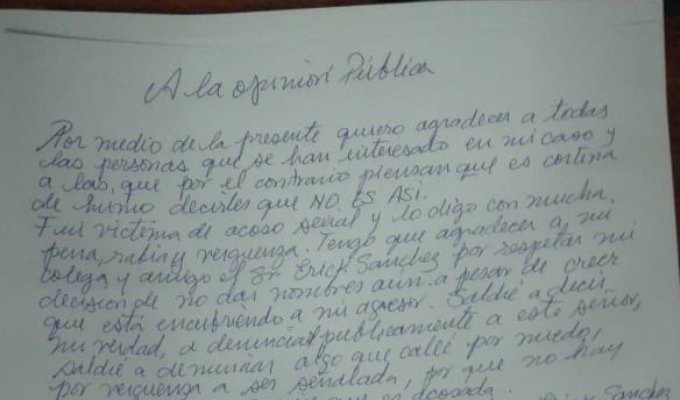 A la opinión Pública
Por medio de la presente quiero agradecer a todas
las personas que se han interesado en mi caso y
a las, que por el contrario piensan que es cortina
de humo decirles que NO ES ASI.
Fui victima de acoso sexual y lo digo con mucha,
pena, rabia y verguenza. Tengo que agradecer a mi
colega y amigo el Sr. Erick Sanchez por respetar mi
decision de no dar nombres aun a pesar de creer
que está encubriendo a mi agresor. Saldré a decir
mi verdad, a denunciar publicamente a este señor,
saldré a denunciar algo que callé por miedo,
por verguenza a ser señalada, por que no hay
acosada. Sanchez